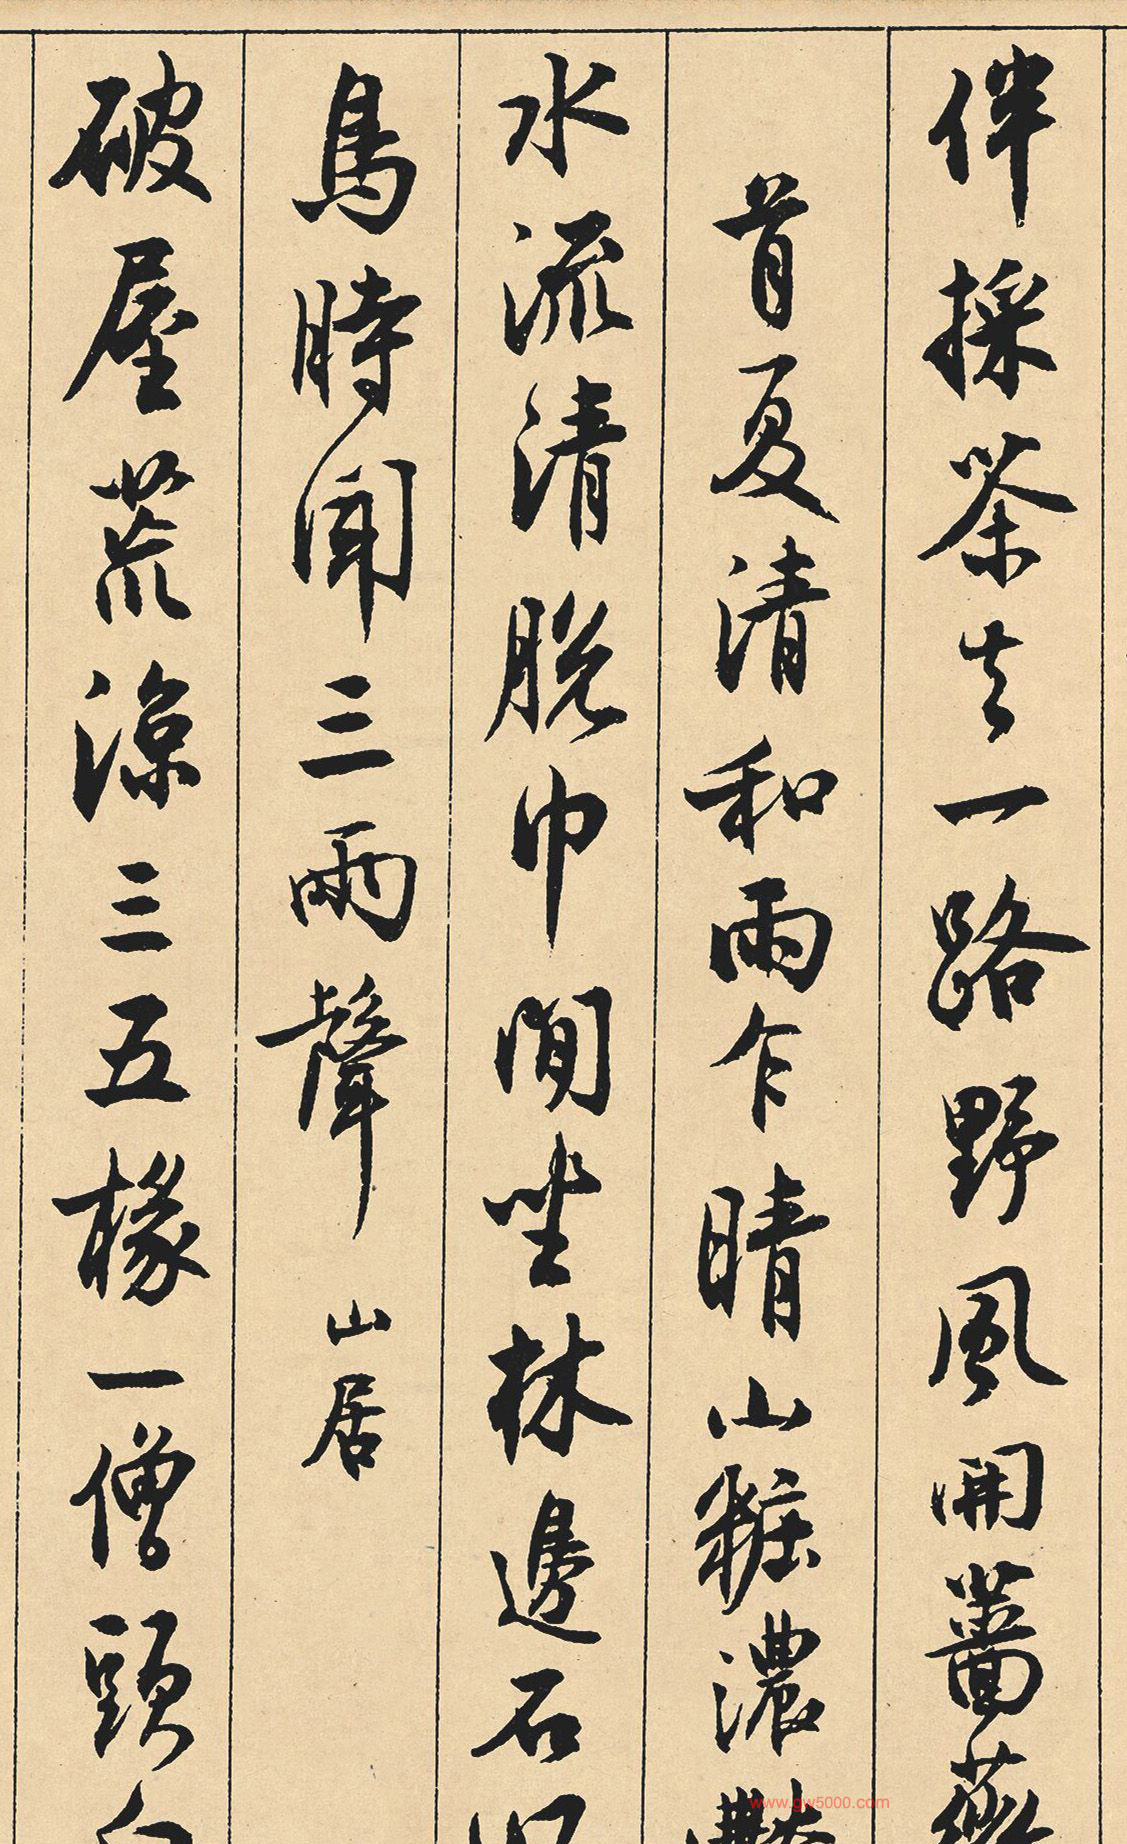 伴採茶去一路野風開薔薇
首夏清和雨乍晴山糚濃艷
水流清脫巾閒坐林邊石
鳥時聞三兩聲 山居
破屋荒涼三五椽一僧頭白
www.gw5000.com